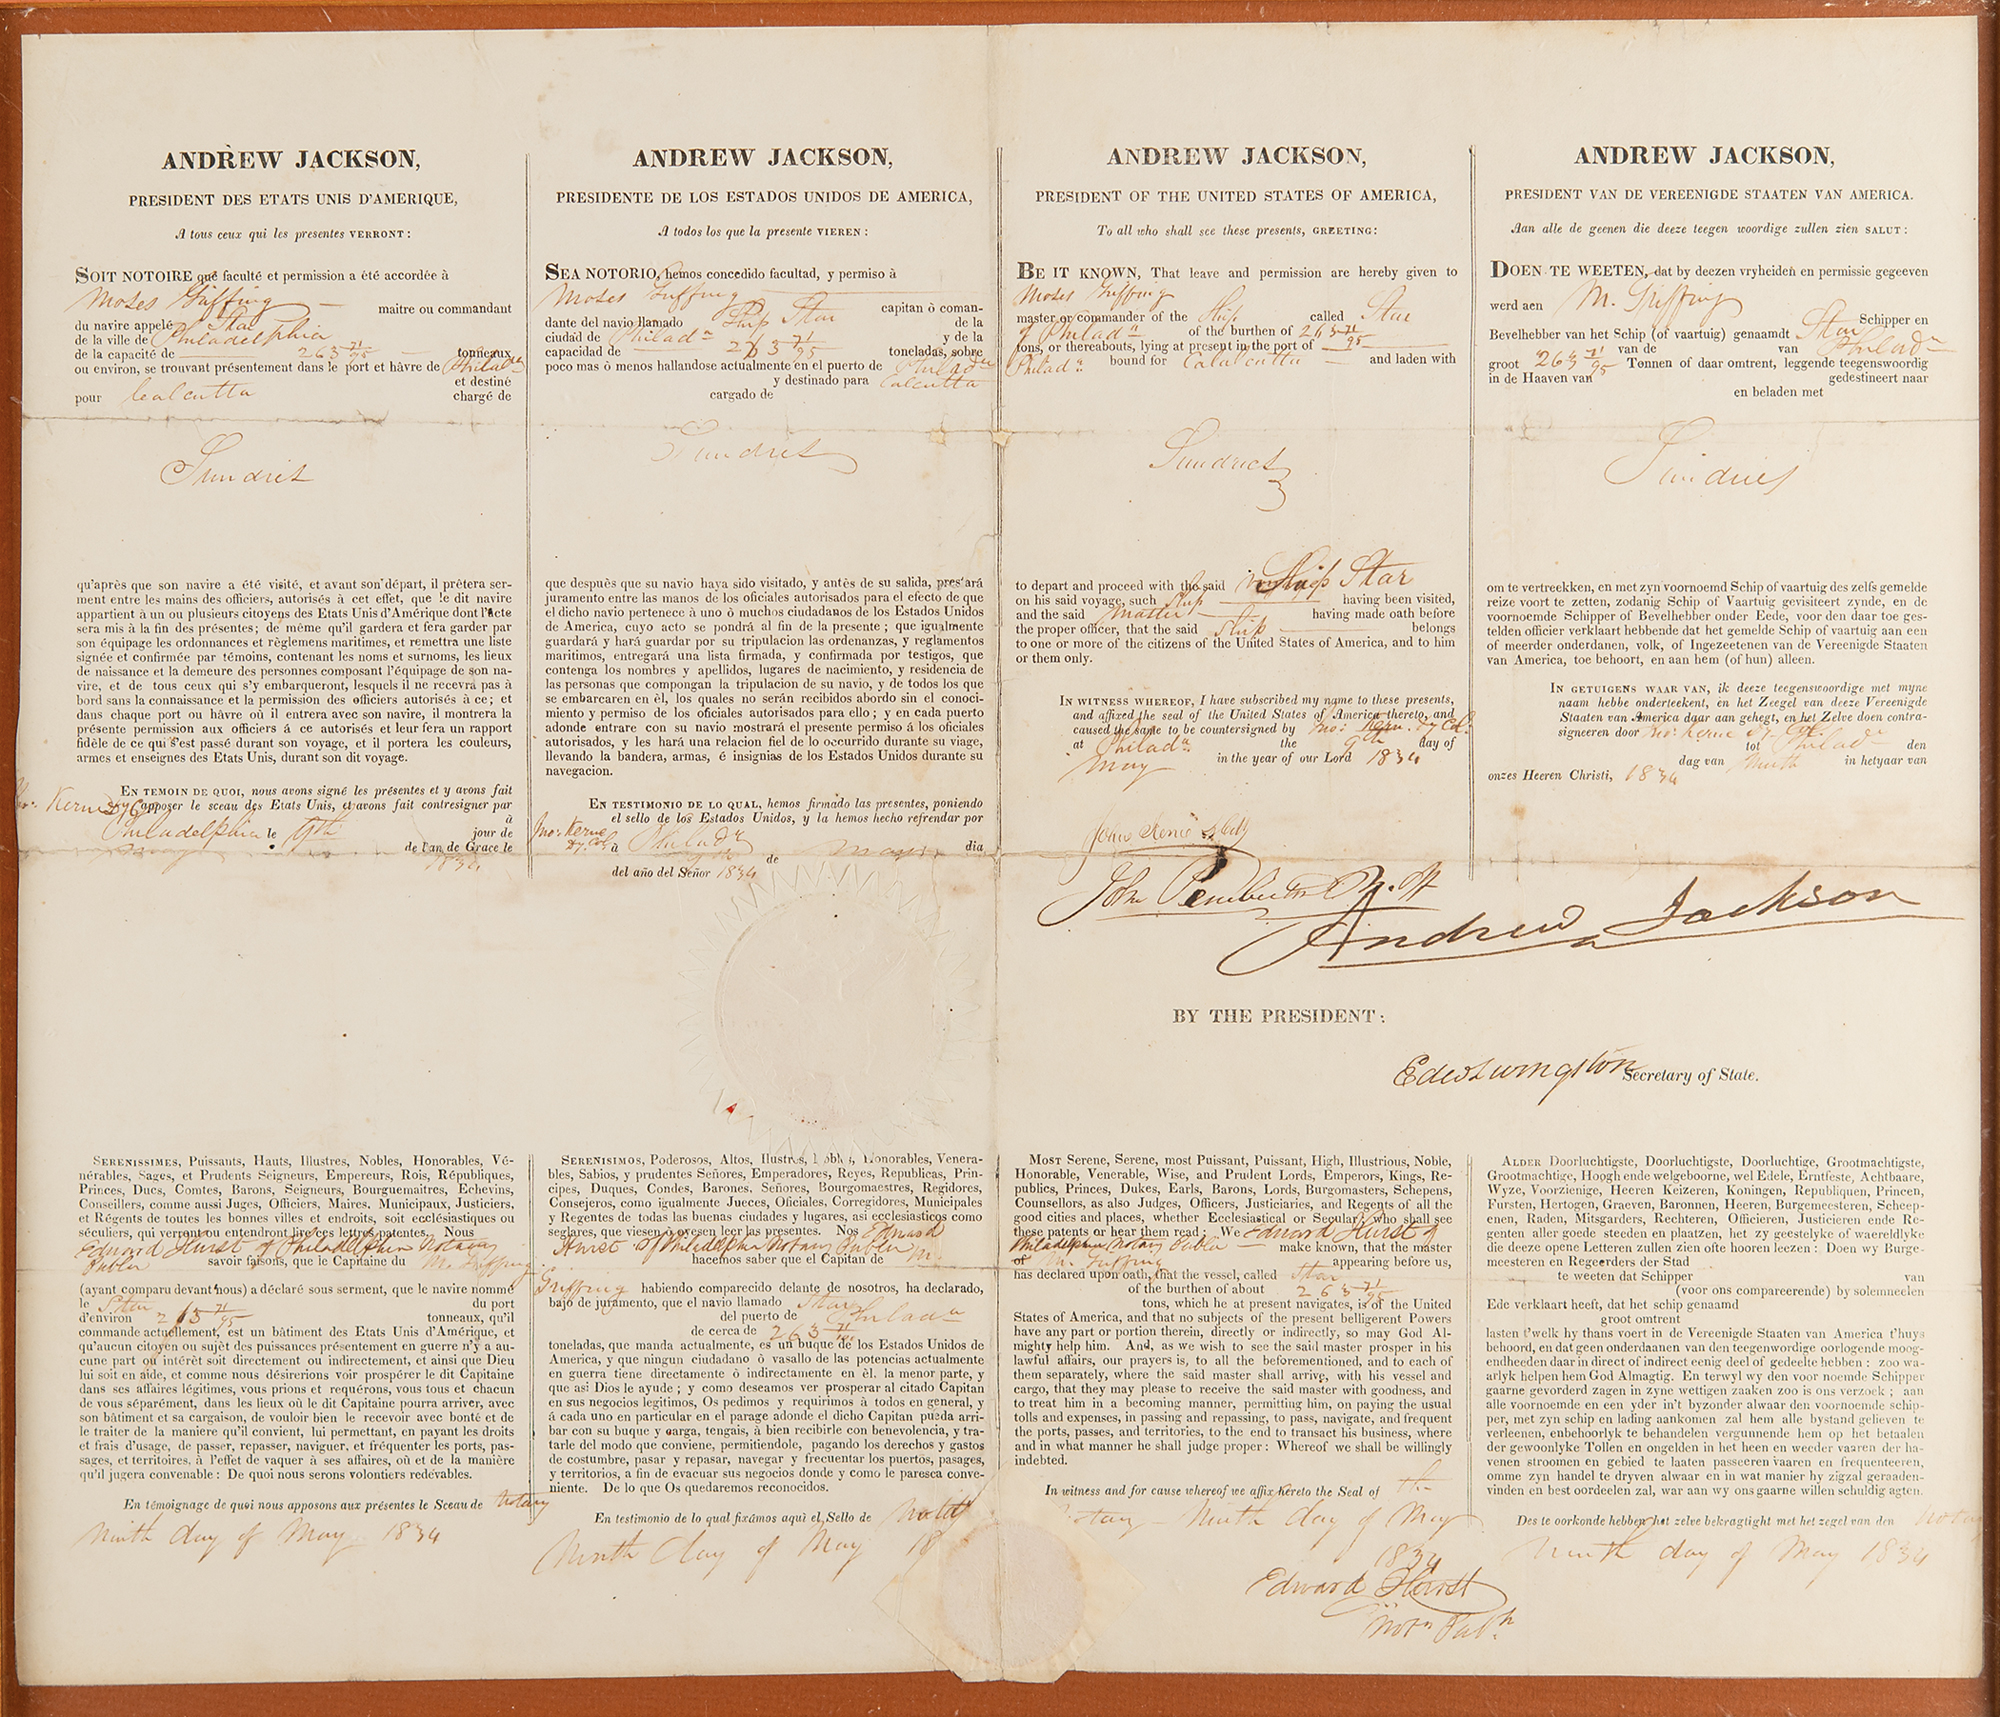 ANDREW JACKSON,
PRESIDENT DES ETATS UNIS D'AMERIQUE,
A tous ceux qui les presentes VERRONT:
SOIT NOTOIRE que faculté et permission a été accordée à
Moses Griffing maitre ou commandant
du navire appelé Star
de la ville de Philadelphia
de la capacité de 263 71/95 tonneaux
ou environ, se trouvant présentement dans le port et hâvre de Philada
et destiné
pour Calcutta chargé de
Sundries
qu'après que son navire a été visité, et avant son départ, il prêtera ser-
ment entre les mains des officiers, autorisés à cet effet, que le dit navire
appartient à un ou plusieurs citoyens des Etats Unis d'Amérique dont l'acte
sera mis à la fin des présentes; de même qu'il gardera et fera garder par
son équipage les ordonnances et règlemens maritimes, et remettra une liste
signée et confirmée par témoins, contenant les noms et surnoms, les lieux
de naissance et la demeure des personnes composant l'équipage de son na-
vire, et de tous ceux qui s'y embarqueront, lesquels il ne recevra pas à
bord sans la connaissance et la permission des officiers autorisés à ce; et
dans chaque port ou hâvre où il entrera avec son navire, il montrera la
présente permission aux officiers á ce autorisés et leur fera un rapport
fidèle de ce qui s'est passé durant son voyage, et il portera les couleurs,
armes et enseignes des Etats Unis, durant son dit voyage.
EN TEMOIN DE QUOI, nous avons signé les présentes et y avons fait
apposer le sceau des Etats Unis, et avons fait contresigner par
Jno: Kerne Dy Col à
Philadelphia le 9th jour de
May de l'an de Grace le
1834
ANDREW JACKSON,
PRESIDENTE DE LOS ESTADOS UNIDOS DE AMERICA,
A todos los que la presente VIEREN:
SEA NOTORIO, hemos concedido facultad, y permiso à
Moses Griffing capitan ò coman-
dante del navio llamado Ship Star de la
ciudad de Philada y de la
capacidad de 263 71/95 toneladas, sobre
poco mas ò menos hallandose actualmente en el puerto de Philada
y destinado para Calcutta
cargado de
Sundries
que despuès que su navio haya sido visitado, y antès de su salida, prestará
juramento entre las manos de los oficiales autorisados para el efecto de que
el dicho navio pertenece à uno ò muchos ciudadanos de los Estados Unidos
de America, cuyo acto se pondrá al fin de la presente; que igualmente
guardará y hará guardar por su tripulacion las ordenanzas, y reglamentos
maritimos, entregará una lista firmada, y confirmada por testigos, que
contenga los nombres y apellidos, lugares de nacimiento, y residencia de
las personas que compongan la tripulacion de su navio, y de todos los que
se embarcaren en èl, los quales no serán recibidos abordo sin el conoci-
miento y permiso de los oficiales autorisados para ello; y en cada puerto
adonde entrare con su navio mostrará el presente permiso á los oficiales
autorisados, y les hará una relacion fiel de lo occurrido durante su viage,
llevando la bandera, armas, é insignias de los Estados Unidos durante su
navegacion.
EN TESTIMONIO DE LO QUAL, hemos firmado las presentes, poniendo
el sello de los Estados Unidos, y la hemos hecho refrendar por
Jno: Kerne Dy. Col à Philada dia
9th de May
del año del Señor 1834
ANDREW JACKSON,
PRESIDENT OF THE UNITED STATES OF AMERICA,
To all who shall see these presents, GREETING:
BE IT KNOWN, That leave and permission are hereby given to
Moses Griffing
master or commander of the Ship called Star
of Philada of the burthen of 263 71/95
tons, or thereabouts, lying at present in the port of
Philada bound for Calcutta and laden with
Sundries
to depart and proceed with the said Ship Star
on his said voyage, such Ship having been visited,
and the said Master having made oath before
the proper officer, that the said Ship belongs
to one or more of the citizens of the United States of America, and to him
or them only.
IN WITNESS WHEREOF, I have subscribed my name to these presents,
and affixed the seal of the United States of America thereto, and
caused the same to be countersigned by Jno: Kerne. Dy Col.
at Philada the 9th day of
May in the year of our Lord 1834
John Kerne Dy Coll
ANDREW JACKSON,
PRESIDENT VAN DE VEREENIGDE STAATEN VAN AMERICA.
Aan alle de geenen die deeze teegen woordige zullen zien SALUT:
DOEN TE WEETEN, dat by deezen vryheiden en permissie gegeeven
werd aen M. Griffing
Schipper en
Bevelhebber van het Schip (of vaartuig) genaamdt Star
van de van Philada
groot 263 71/95 Tonnen of daar omtrent, leggende teegenswoordig
in de Haaven van gedestineert naar
en beladen met
Sundries
om te vertreekken, en met zyn voornoemd Schip of vaartuig des zelfs gemelde
reize voort te zetten, zodanig Schip of Vaartuig gevisiteert zynde, en de
voornoemde Schipper of Bevelhebber onder Eede, voor den daar toe ges-
telden officier verklaart hebbende dat het gemelde Schip of vaartuig aan een
of meerder onderdanen, volk, of Ingezeetenen van de Vereenigde Staaten
van America, toe behoort, en aan hem (of hun) alleen.
IN GETUIGENS WAAR VAN, ik deeze teegenswoordige met myne
naam hebbe onderteekent, en het Zeegel van deeze Vereenigde
Staaten van America daar aan gehegt, en het Zelve doen contra-
signeeren door Jno: Kerne Dy Col.
tot Philada den
dag van Ninth in hetyaar van
onzes Heeren Christi, 1834
Andrew Jackson
BY THE PRESIDENT:
Edw Livingston Secretary of State.
SERENISSIMES, Puissants, Hauts, Illustres, Nobles, Honorables, Vé-
nérables, Sages, et Prudents Seigneurs, Empereurs, Rois, Républiques,
Princes, Ducs, Comtes, Barons, Seigneurs, Bourguemaitres, Echevins,
Conseillers, comme aussi Juges, Officiers, Maires, Municipaux, Justiciers,
et Régents de toutes les bonnes villes et endroits, soit ecclésiastiques ou
séculiers, qui verront ou entendront lire ces lettres patentes. Nous
Edward Hurst of Philadelphia Notary
Public savoir faisons, que le Capitaine du M. Griffing
(ayant comparu devant nous) a déclaré sous serment, que le navire nommé
le Star du port
d'environ 263 71/95 tonneaux, qu'il
commande actuellement, est un bâtiment des Etats Unis d'Amérique, et
qu'aucun citoyen ou sujèt des puissances présentement en guerre n'y a au-
cune part ou intérêt soit directement ou indirectement, et ainsi que Dieu
lui soit en aide, et comme nous désirerions voir prospérer le dit Capitaine
dans ses affaires légitimes, vous prions et requérons, vous tous et chacun
de vous séparément, dans les lieux où le dit Capitaine pourra arriver, avec
son bâtiment et sa cargaison, de vouloir bien le recevoir avec bonté et de
le traiter de la maniere qu'il convient, lui permettant, en payant les droits
et frais d'usage, de passer, repasser, naviguer, et fréquenter les ports, pas-
sages, et territoires, à l'effet de vaquer à ses affaires, où et de la manière
qu'il jugera convenable: De quoi nous serons volontiers redevables.
En témoignage de quoi nous apposons aux présentes le Sceau de Notary
Ninth day of May 1834
SERENISIMOS, Poderosos, Altos, Ilustres, Nobles, Honorables, Venera-
bles, Sabios, y prudentes Señores, Emperadores, Reyes, Republicas, Prin-
cipes, Duques, Condes, Barones, Señores, Bourgomaestres, Regidores,
Consejeros, como igualmente Jueces, Oficiales, Corregidores, Municipales
y Regentes de todas las buenas ciudades y lugares, asi ecclesiasticos como
seglares, que viesen ò oyesen leer las presentes. Nos Edward
Hurst of Philadelphia Notary Public
hacemos saber que el Capitan de M.
Griffing habiendo comparecido delante de nosotros, ha declarado,
bajo de juramento, que el navio llamado Star
del puerto de Philada
de cerca de 263 71/95
toneladas, que manda actualmente, es un buque de los Estados Unidos de
America, y que ningun ciudadano ò vasallo de las potencias actualmente
en guerra tiene directamente ò indirectamente en èl. la menor parte, y
que asi Dios le ayude; y como deseamos ver prosperar al citado Capitan
en sus negocios legitimos, Os pedimos y requirimos à todos en general, y
á cada uno en particular en el parage adonde el dicho Capitan pueda arri-
bar con su buque y carga, tengais, à bien recibirle con benevolencia, y tra-
tarle del modo que conviene, permitiendole, pagando los derechos y gastos
de costumbre, pasar y repasar, navegar y frecuentar los puertos, pasages,
y territorios, a fin de evacuar sus negocios donde y como le paresca conve-
niente. De lo que Os quedaremos reconocidos.
En testimonio de lo qual fixámos aquì el Sello de Notary
Ninth day of May 18
MOST Serene, Serene, most Puissant, Puissant, High, Illustrious, Noble,
Honorable, Venerable, Wise, and Prudent Lords, Emperors, Kings, Re-
publics, Princes, Dukes, Earls, Barons, Lords, Burgomasters, Schepens,
Counsellors, as also Judges, Officers, Justiciaries, and Regents of all the
good cities and places, whether Ecclesiastical or Secular, who shall see
these patents or hear them read: We Edward Hurst of
Philadelphia Notary Public make known, that the master
of M. Griffing appearing before us,
has declared upon oath, that the vessel, called Star
of the burthen of about 263 71/95
tons, which he at present navigates, is of the United
States of America, and that no subjects of the present belligerent Powers
have any part or portion therein, directly or indirectly, so may God Al-
mighty help him. And, as we wish to see the said master prosper in his
lawful affairs, our prayers is, to all the beforementioned, and to each of
them separately, where the said master shall arrive, with his vessel and
cargo, that they may please to receive the said master with goodness, and
to treat him in a becoming manner, permitting him, on paying the usual
tolls and expenses, in passing and repassing, to pass, navigate, and frequent
the ports, passes, and territories, to the end to transact his business, where
and in what manner he shall judge proper: Whereof we shall be willingly
indebted.
In witness and for cause whereof we affix hereto the Seal of the
Notary Ninth day of May
1834
Edward Hurst
Notr Pubc
ALDER Doorluchtigste, Doorluchtigste, Doorluchtige, Grootmachtigste,
Grootmachtige, Hoogh ende welgeboorne, wel Edele, Erntfeste, Achtbaare,
Wyze, Voorzienige, Heeren Keizeren, Koningen, Republiquen, Princen,
Fursten, Hertogen, Graeven, Baronnen, Heeren, Burgemeesteren, Scheep-
enen, Raden, Mitsgarders, Rechteren, Officieren, Justicieren ende Re-
genten aller goede steeden en plaatzen, het zy geestelyke of waereldlyke
die deeze opene Letteren zullen zien ofte hooren leezen: Doen wy Burge-
meesteren en Regeerders der Stad
te weeten dat Schipper van
(voor ons compareerende) by solemneelen
Ede verklaart heeft, dat het schip genaamd
groot omtrent
lasten t'welk hy thans voert in de Vereenigde Staaten van America t'huys
behoord, en dat geen onderdaanen van den teegenwordige oorlogende moog-
endheeden daar in direct of indirect eenig deel of gedeelte hebben: zoo wa-
arlyk helpen hem God Almagtig. En terwyl wy den voor noemde Schipper
gaarne gevorderd zagen in zyne wettigen zaaken zoo is ons verzoek; aan
alle voornoemde en een yder in't byzonder alwaar den voornoemde schip-
per, met zyn schip en lading aankomen zal hem alle bystand gelieven te
verleenen, enbehoorlyk te behandelen vergunnende hem op het betaalen
der gewoonlyke Tollen en ongelden in het heen en weeder vaaren der ha-
venen stroomen en gebied te laaten passeeren vaaren en frequenteeren,
omme zyn handel te dryven alwaar en in wat manier hy zigzal geraaden-
vinden en best oordeelen zal, war aan wy ons gaarne willen schuldig agten.
Des te oorkonde hebben het zelve bekragtight met het zegel van den Notary
Ninth day of May 1834